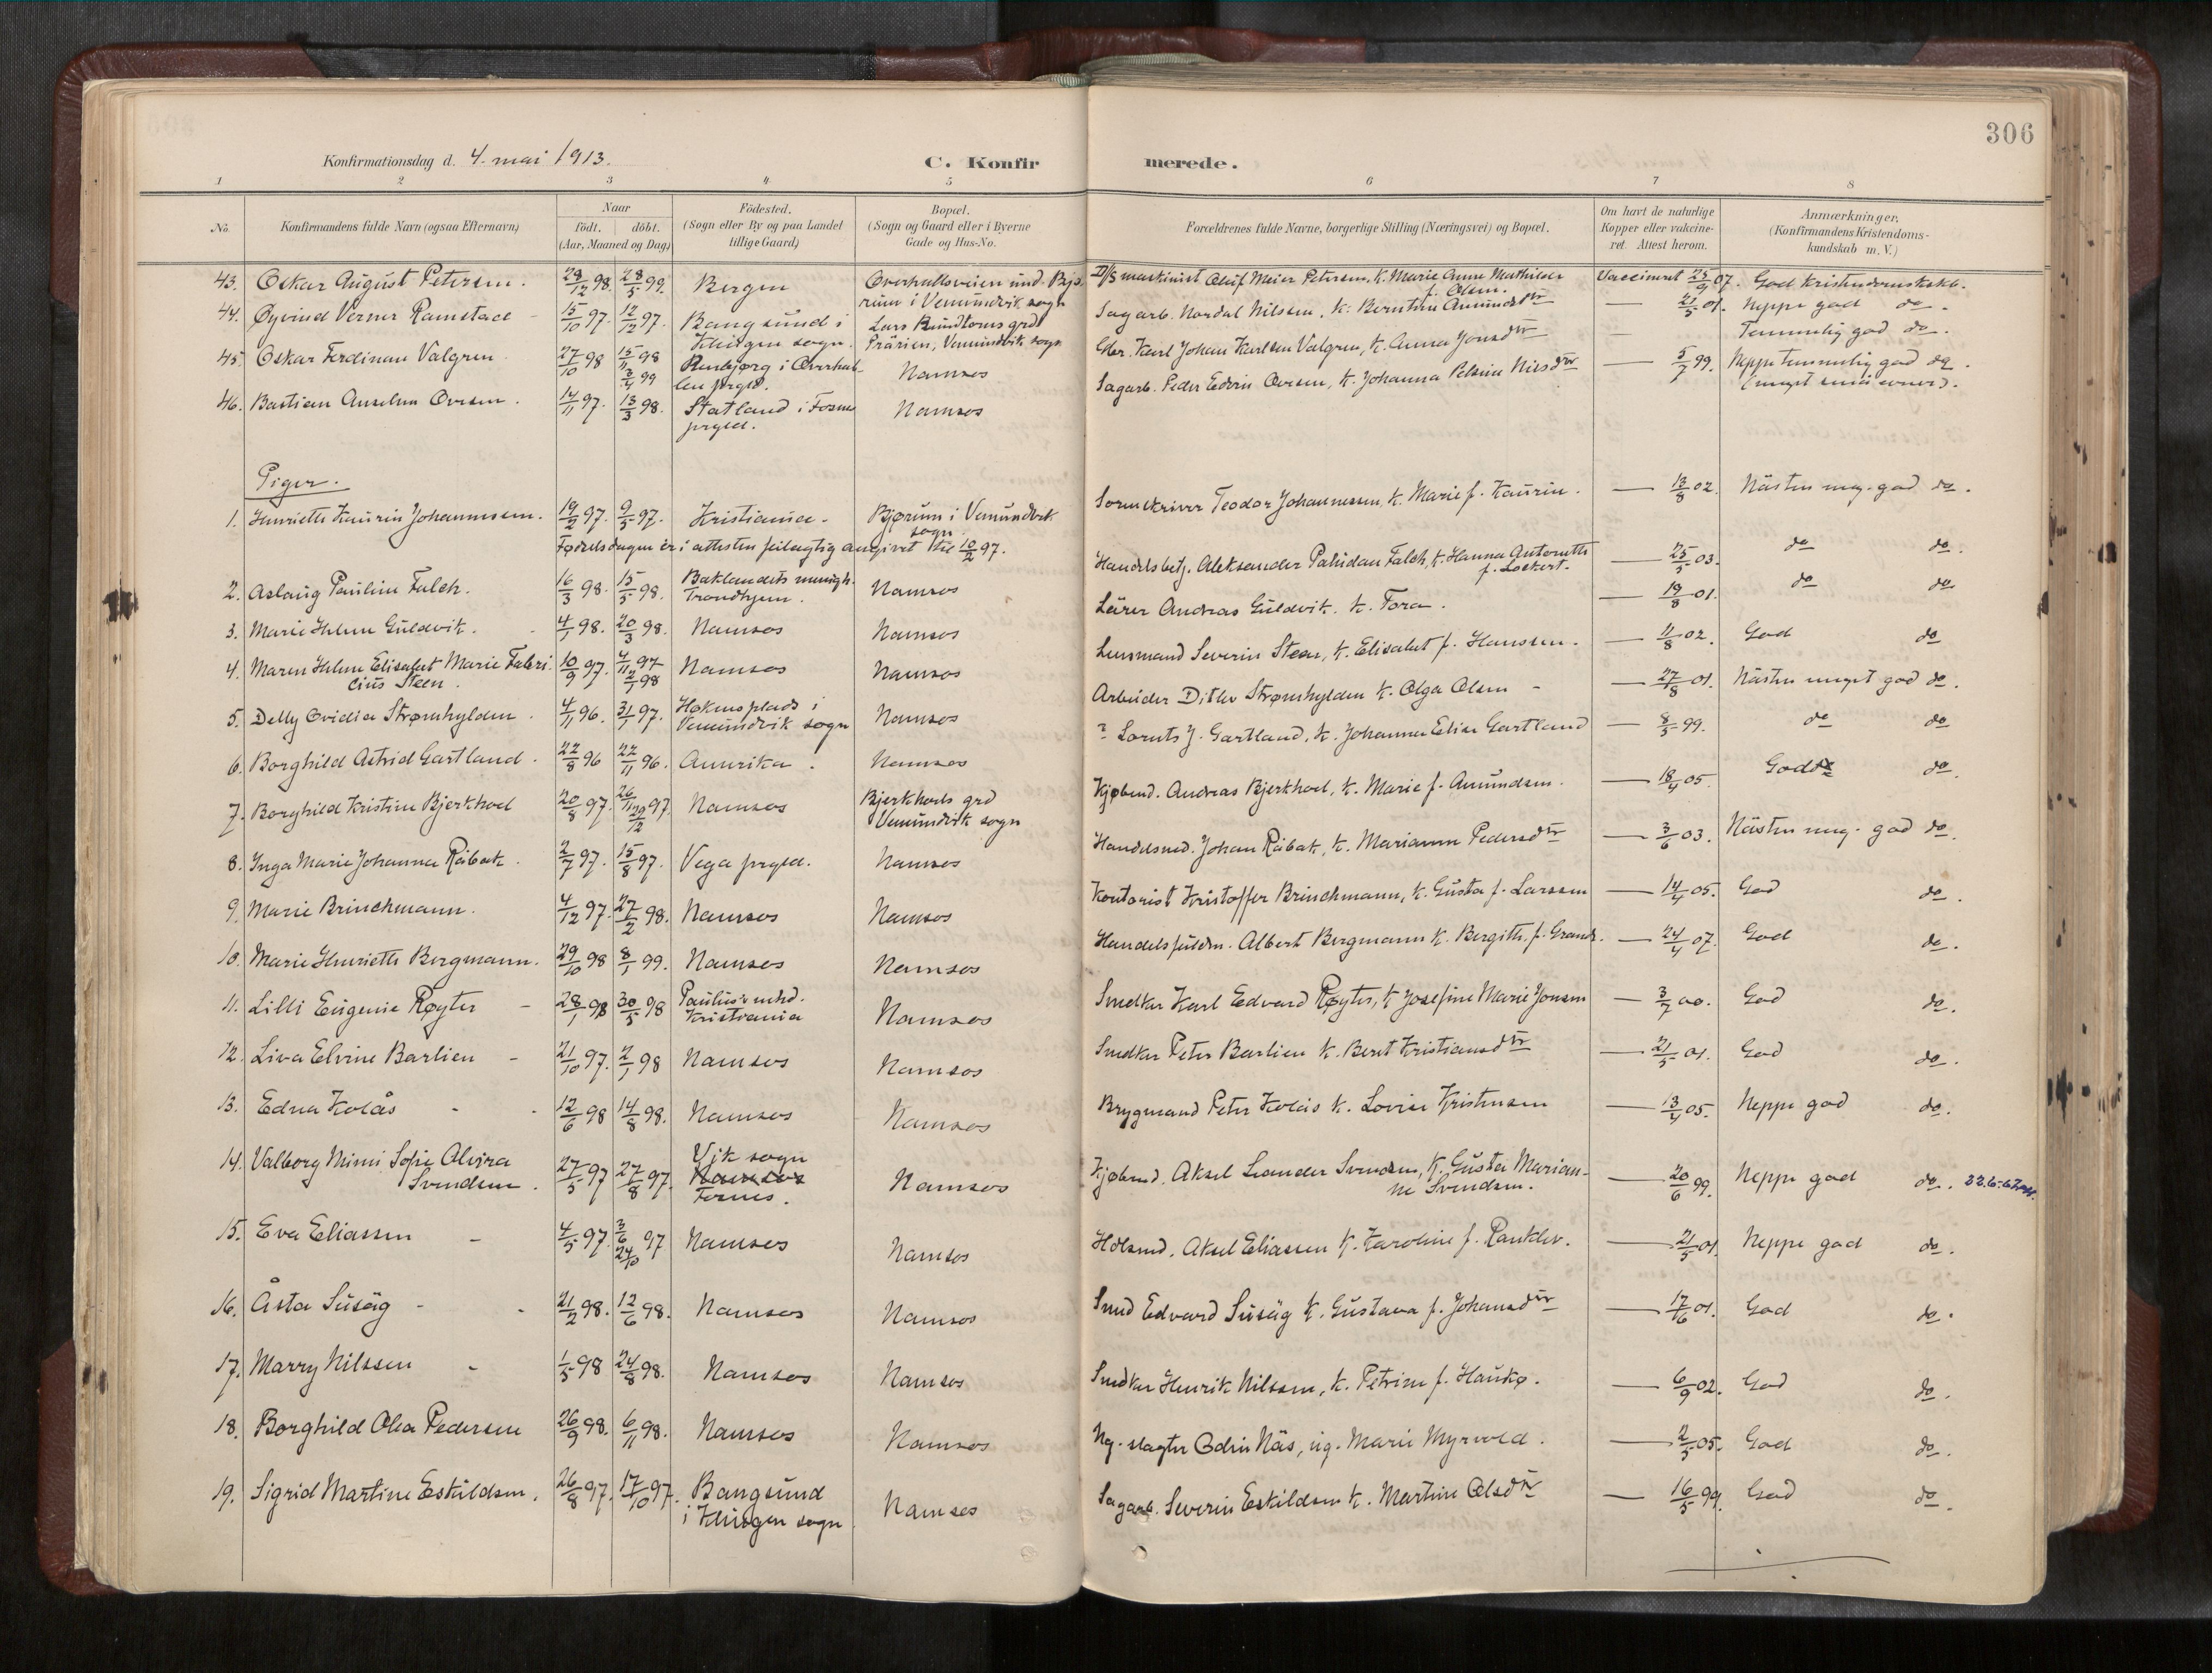 306
Konfirmationsdag d. 4. mai 1913.
C. Konfirmerede.
1 2 3 4 5 6 7 8
No. Konfirmandens fulde Navn (ogsaa Efternavn) Naar födt. döbt. (Aar, Maaned og Dag) Födested. (Sogn eller By og paa Landet tillige Gaard) Bopæl. (Sogn og Gaard eller i Byerne Gade og Hus-No. Forældrenes fulde Navne, borgerlige Stilling (Næringsvei) og Bopæl. Om havt de naturlige Kopper eller vakcineret. Attest herom. Anmærkninger. (Konfirmandens Kristendomskundskab m. V.)
43. Oskar August Petersen. 28/12 98. 28/5 99. Bergen Overhallsveien und. Bjørum i Vemundvik sogn D/S maskinist Oluf Meier Petersen, K. Marie Anna Mathilde f. Olsen. Vaccineret 25/9 07. God kristendomskskb.
44. Øyvind Verner Ramstad 15/10 97. 12/12 97. Bangsund i Klingen sogn. Lars grd Prärien, Vemundvik sogn Sagarb. Nordal Nilssen, K. Berntine Amundsdtr — 21/5 01. Neppe god do.
45. Oskar Ferdinan Valgren 27/10 98 15/11 98 3/4 99 Ranbjørg i Overhallen prgld. Namsos Gbr. Karl Johan Karlsen Valgren, K. Anna Jonsdtr — Temmelig god do.
46. Bastian Anselm Ovesen. 14/11 97. 13/3 98. Statland i Fosnes prgld. Namsos Sagarb. Peder Edvin Ovesen, K. Johanna Nilsdtr — 5/7 99. Neppe temmelig god do. (meget små evner).
Piger.
1. Henriette Kaurin Johannessen. 19/2 97. 9/5 97. Kristiania. Bjørum i Vemundvik sogn Sorenskriver Teodor Johannessen, K. Marie f. Kaurin. — 13/8 02. Nästen meg. god do.
Fødselsdagen er i attesten feilagtig angivet til 10/2 97.
2. Aslaug Pauline Falch. 16/3 98. 15/5 98. Baklandets menigh. Trondhjem. Namsos Handelsbetj. Aleksander Falch, K. Hanna Antonette f. Lockert. — 25/5 03. do do.
3. Marie Helene Guldvik. 4/1 98. 20/3 98. Namsos Namsos Lärer Andreas Guldvik. K. Tora. — 19/8 01. do do
4. Maren Helene Elisabet Marie Fabricius Steen. 10/9 97. 4/11 97 2/1 98 Namsos Namsos Lensmand Severin Steen, K. Elisabet f. Hanssen. — 11/8 02. God do
5. Delly Ovidia Strømhylden. 4/11 96. 31/1 97. Høknesplads i Vemundvik sogn Namsos Arbeider Ditlev Strømhylden K. Olga Olsen — 27/8 01. Nästen meget god do.
6. Borghild Astrid Gartland. 22/8 96 22/11 96. Amerika. Namsos ? Lornts J. Gartland, K. Johanna Elise Gartland — 8/5 99. do do
7. Borghild Kristine Bjerkhoel 20/8 97. 26/11 29/12 97. Namsos Bjerkhoels grd Vemundvik sogn Kjøbmd. Andreas Bjerkhoel, K. Marie f. Amundsen. — 18/4 05. God do.
8. Inga Marie Johanna Råbak. 2/7 97. 15/8 97. Vega prgld. Namsos Handelsmd. Johan Råbak, K. Marianne Pedersdtr — 3/6 03. Nästen meg. god do.
9. Marie Brinchmann. 4/12 97. 27/2 98. Namsos Namsos Kontorist Kristoffer Brinchmann, K. Gusta f. Larssen — 14/4 05. God do.
10. Marie Henriette Bergmann. 29/10 98 8/1 99. Namsos Namsos Handelsfuldm. Albert Bergmann K. Bergitte f. Grande. — 24/4 07. God do.
11. Lilli Eugenie Røyter 28/1 98 30/5 98 Paulus mhd. Kristiania Namsos Snedker Karl Edvard Røyter, K. Josefine Marie Jonsen — 3/7 00. God do.
12. Liva Elvine Barlien 21/10 97. 2/1 98 Namsos Namsos Snedker Peter Barlien K. Berit Kristiansdtr — 21/5 01. God do.
13. Edna Kolås 12/6 98 14/8 98. Namsos Namsos Brygmand Peter Kolås K. Lovise Kristensen — 13/4 05. Neppe god do.
14. Valborg Mimi Sofie Alvira Svendsen. 27/5 97 27/8 97. Vik sogn Namsos Fornes. Namsos Kjøbmd. Aksel Leander Svendsen, K. Gusta Marianne Svendsen. — 20/6 99. Neppe god do. 22.6-67
15. Eva Eliassen 4/5 97. 3/6 24/10 97 Namsos Namsos Aksel Eliassen K. Karoline f. Ranklev. — 21/5 01. Neppe god do.
16. Åsta Susäg 21/2 98. 12/6 98. Namsos Namsos Smed Edvard Susäg K. Gustava f. Johansdtr — 17/6 01. God do.
17. Marry Nilssen 1/5 98 24/8 98. Namsos Namsos Snedker Henrik Nilssen, K. Petrine f. Haukø. — 6/9 02. God do.
18. Borghild Olea Pedersen 26/9 98. 6/11 98. Namsos Namsos Ug. slagter Odin Näs, ug. Marie Myrvold. — 2/5 05. God do.
19. Sigrid Martine Eskildsen. 26/8 97. 17/10 97. Bangsund i Klingen sogn Namsos Sagarb. Severin Eskildsen K. Martine Olsdtr — 16/5 99. God do.